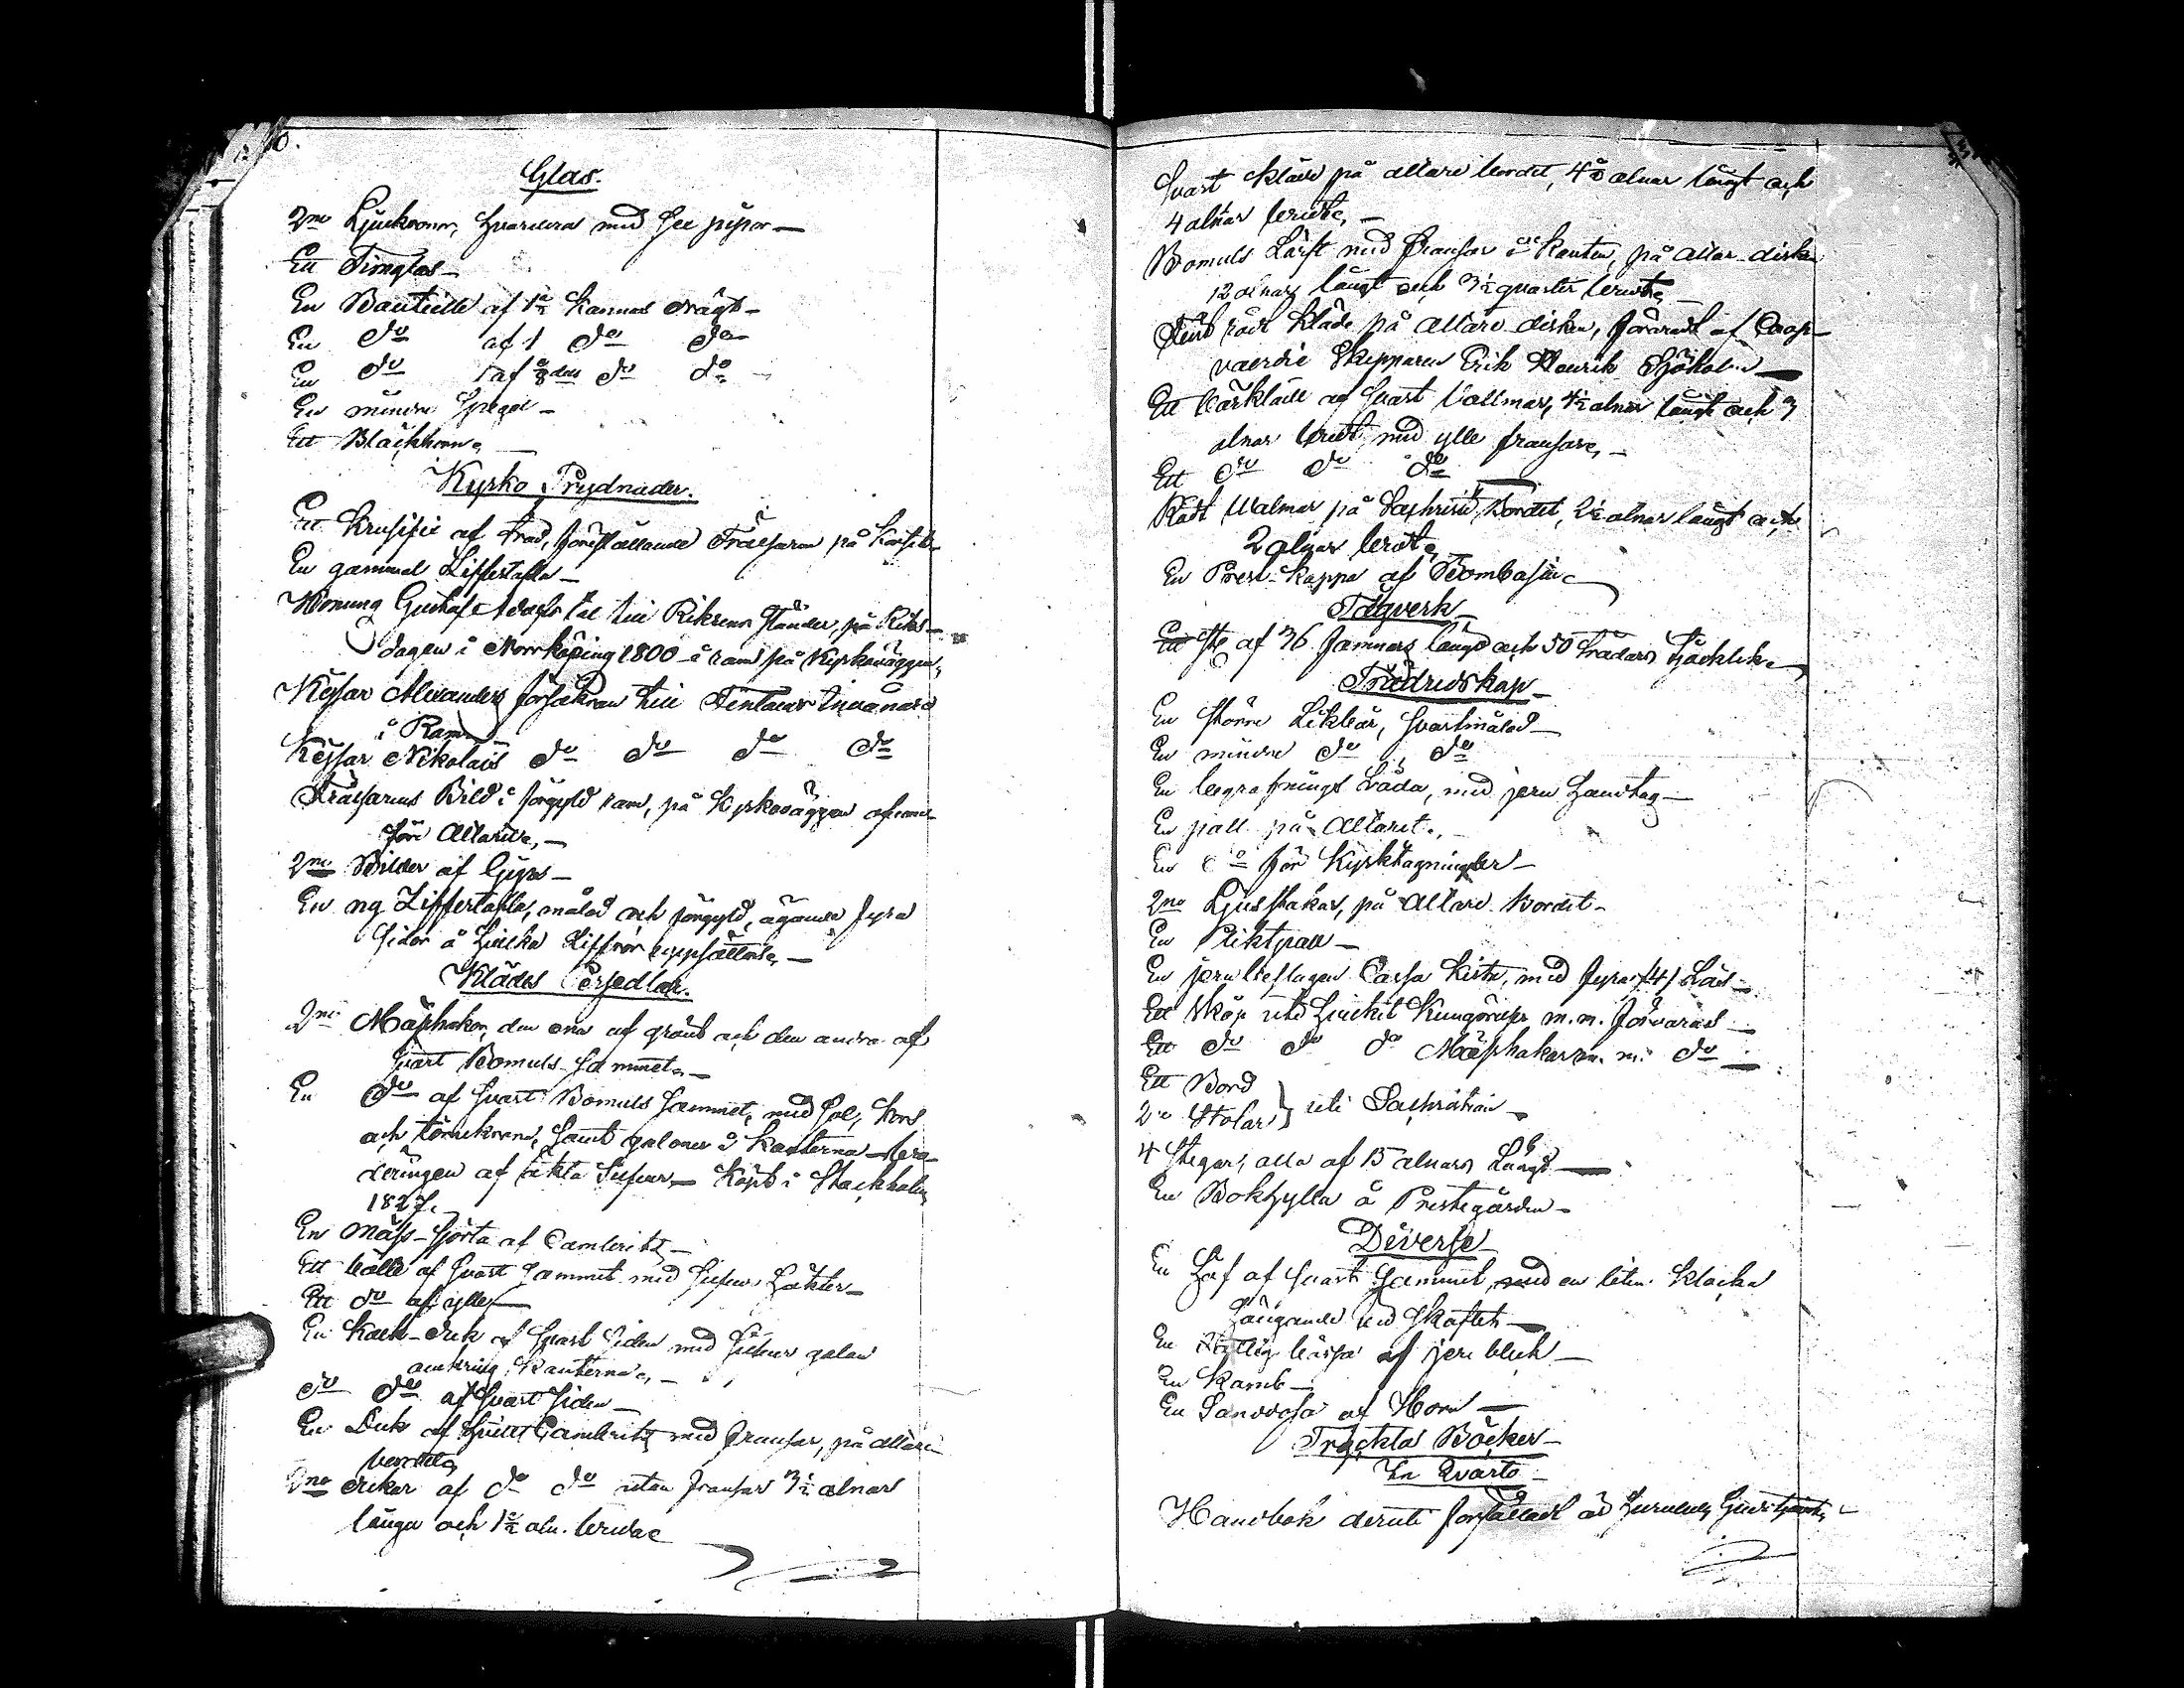 Glas.
2ne Ljuskronor, hvardera med sex pipor —
Ett Timglas —
En Bauteille af 1½ Kannas drägt —
En do af 1 do do
En do af do do
En mindre Spegel —
Ett Bläckhorn, —
Kyrko Prydnader.
Ett Krusifix af träd, föreställande Frälsaren på Korset
En gammal Ziffertafla —
Konung Gustaf Adolfs tal till Riksens Ständer, på Riks-
dagen i Norrköping 1800 i ram på Kyrkoväggen,
Kejsar Alexanders försäkran till Finlands Invånare
i Ram
Kejsar Nikolais do do do do
Frälsarens Bild i förgyld ram, på Kyrkoväggen ofvan-
före Altaret, —
2ne Bilder af Gyps —
En ny Ziffertafla, målad och förgyld, ägande fyra
sidor å hvilka Ziffror uppsättas, —
Klädes Persedlar.
2ne Mässhakar, den ena af grönt och den andra af
svart Bomuls Sammet, —
En do af Svart Bomuls Sammet, med Sol, Kors
och törnekrona, samt galoner i Kanterna — Bro-
deringen af äkta Silfver — Köpt i Stockholm
1827.
En Mäss-Sjorta af Cambrits —
Ett bälte af Svart Sammet med Silfver Häkter —
Ett do af ylle —
En Kalk-duk af Svart Siden med Silfver galon
omkring Kanterna, —
do do af Svart Siden —
En Duk af hvitt Cambrits med fransar, på altare
bordet,
2ne dukar af do do utan fransar 3½ alnar
långa och 1½ aln. breda
Svart Kläde på altare bordet, alnar långt och
4 alnar bredt, —
Bomuls Lärft med fransar i Kanten, på altar-disken
12 alnar långt och 3½ quarter bredt, —
Fint rödt Kläde på altare disken, föräradt af Coop-
vaerdie Skepparen Erik Henrik Sjöholm —
Ett Bårkläde af Svart Vallmar, 4½ alnar långt och 3
alnar bredt, med ylle fransar, —
Ett do do do
Rödt Walmar på Sachristie Bordet, 2½ alnar långt och
2 alnar bredt,
En Prest-Kappa af Bombasin
Tågverk
af 36 famnars längd och 50 trådars tjocklek
Trädredskap
En större Likbår, Svartmålad —
En mindre do do
En begrafnings Låda, med jern handtag —
En pall på Altaret. —
En do för Kyrktagningar —
2ne Ljusstakar, på Altare Bordet —
En Pliktpall —
En jernbeslagen Cassa Kista, med fyra /4/ Lås —
Ett Skåp uti hvilket Kungörelser m.m. förvaras —
Ett do do do Mäshakar m. m. do —
Ett Bord
2ne Stolar } uti Sachristian —
4 Stegar, alla af 15 alnars Längd —
En Bokhylla å Prestegården —
Diverse
En Håf af svart Sammet, med en liten Klocka
hängande vid Skaftet —
En bössa af jern bleck —
En Kamb —
En Sanddosa af Horn —
Tryckta Böcker —
In Qvarto —
Handbok deruti författadt är huruledes Gudstjenst,